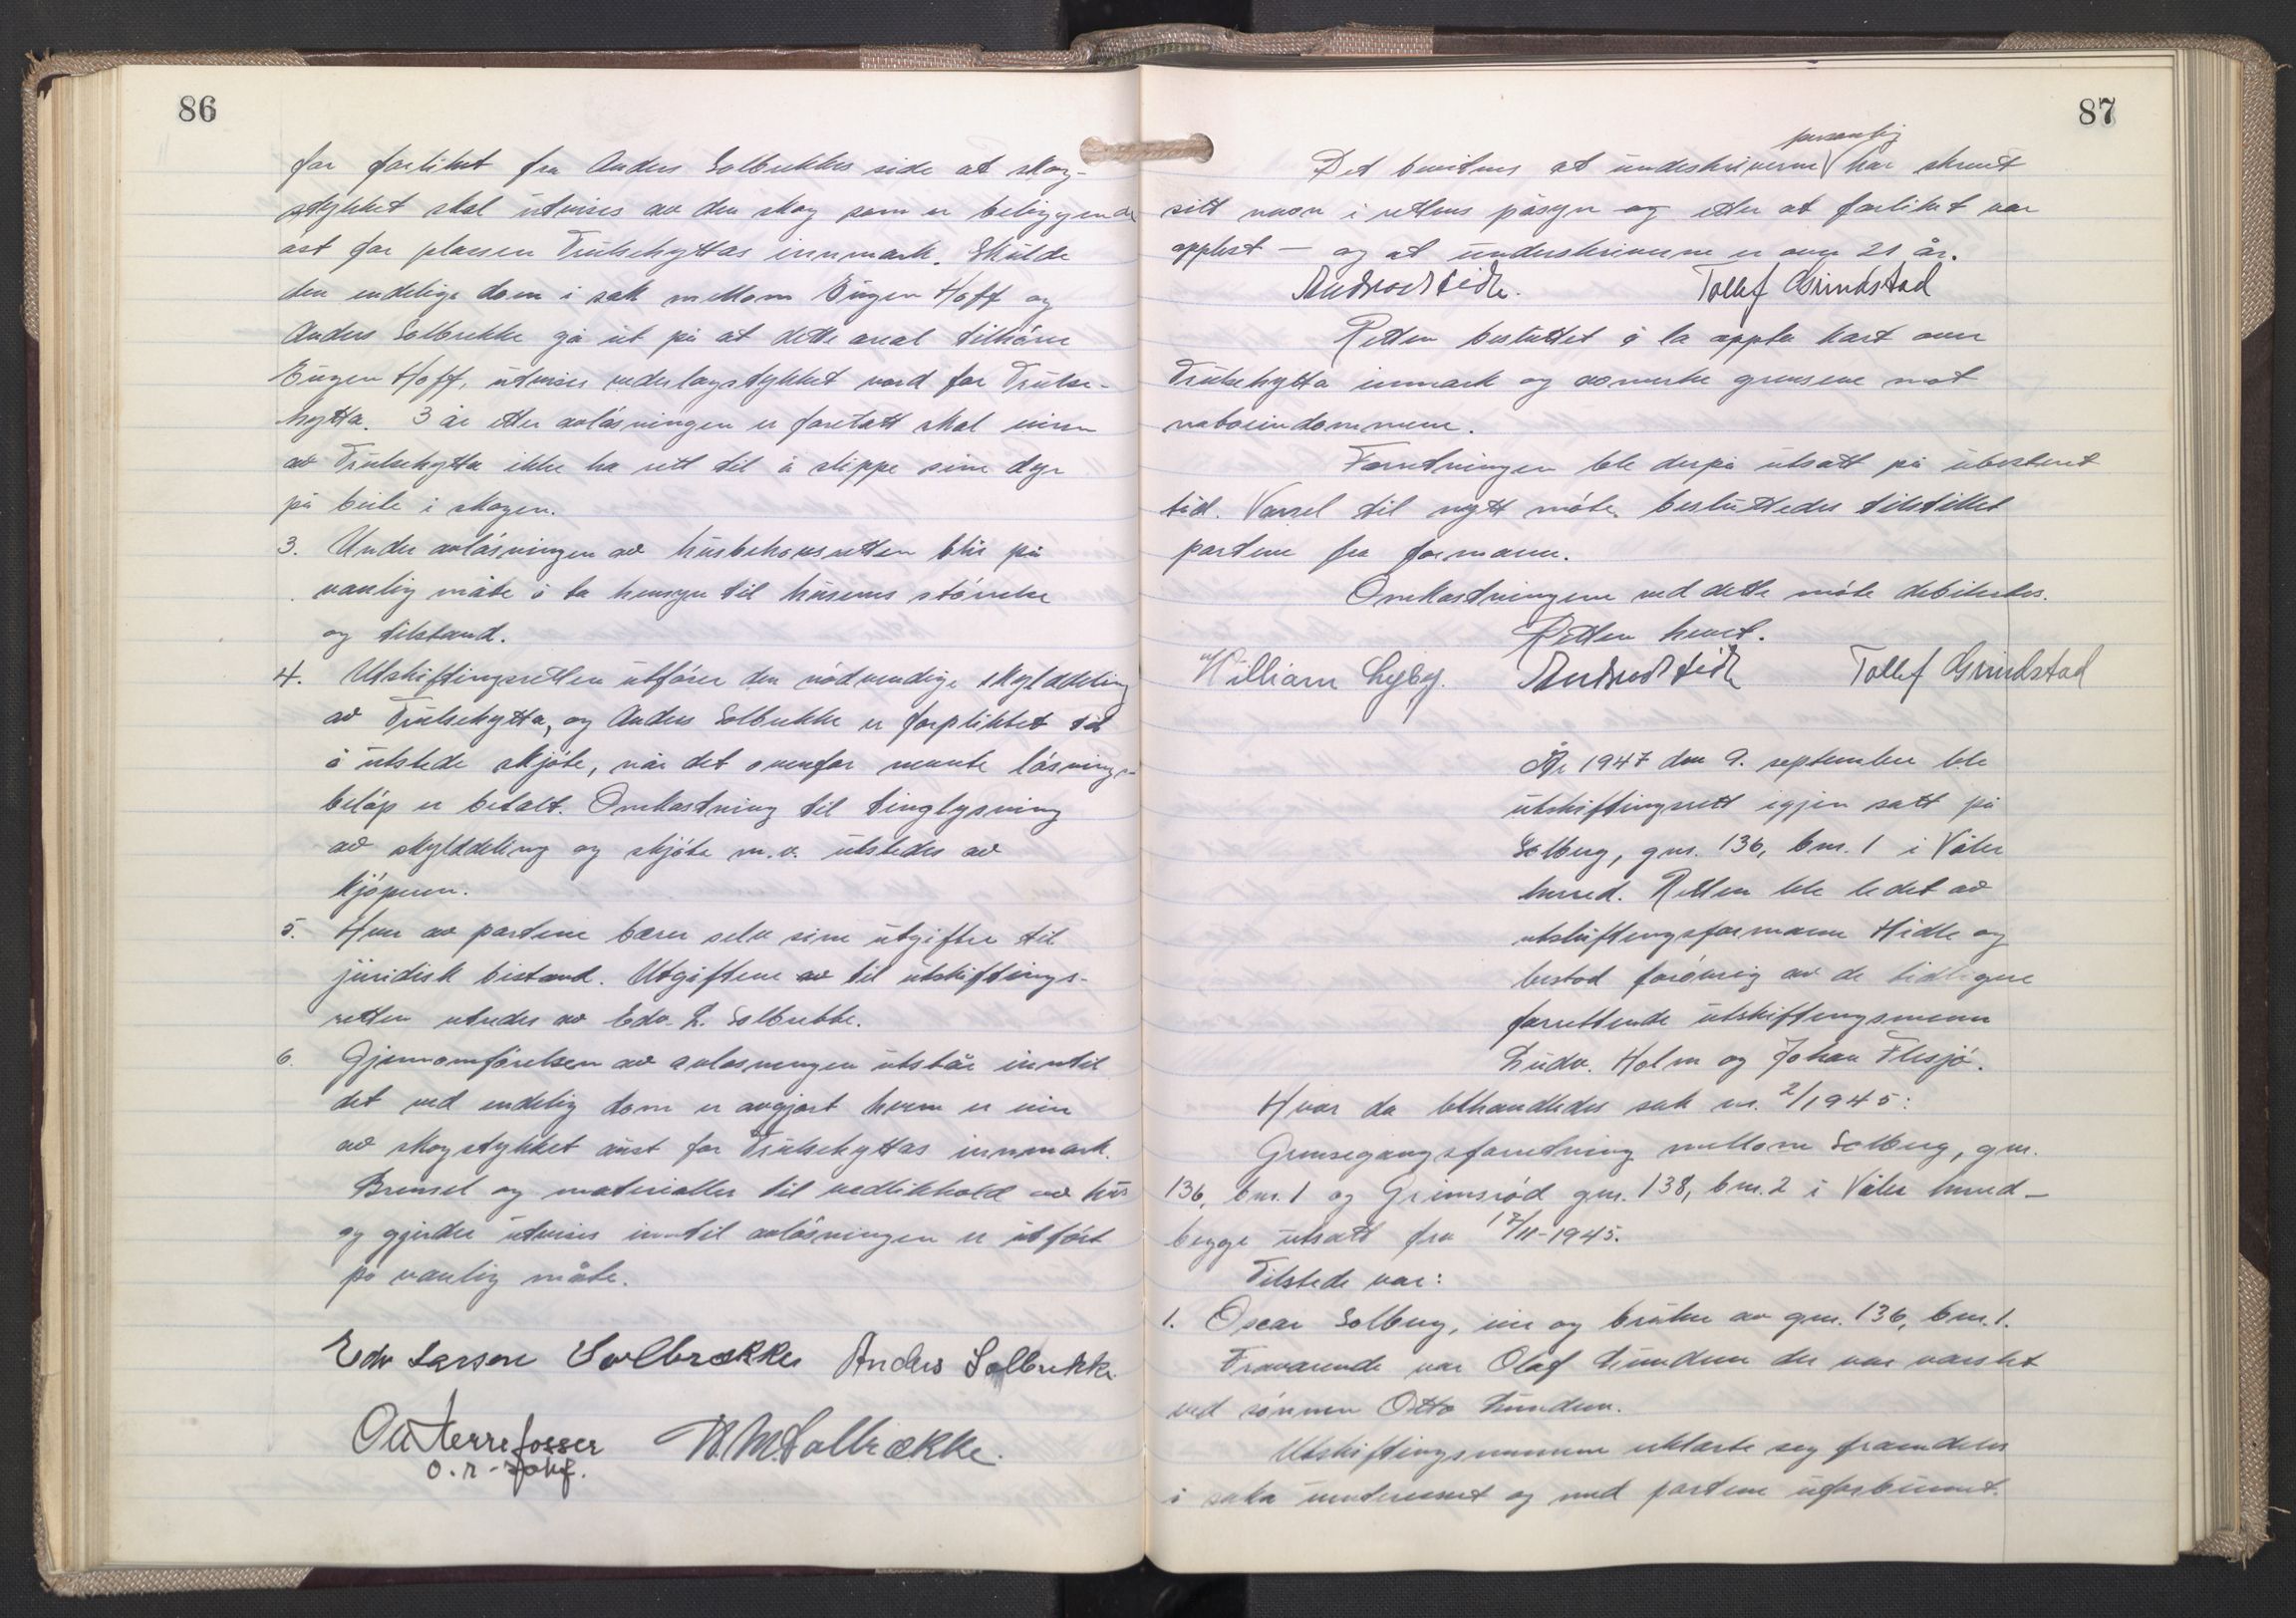 86
for forliket fra Anders Solbrekkes side at skog-
stykket skal utvises av den skog som er beliggende
øst for plassen Trulsehyttas innmark. Skulde
den endelige dom i sak mellom Eugen Hoff og
Anders Solbrekke gå ut på at dette areal tilhører
Eugen Hoff, utvises vederlagsstykket nord for Trulse-
hytta. 3 år etter avløsningen er foretatt skal eieren
av Trulsehytta ikke ha rett til å slippe sine dyr
på beite i skogen.
3. Under avløsningen av husbehovsretten blir på
vanlig måte å ta hensyn til husenes størrelse
og tilstand.
4. Utskiftingsretten utfører den nødvendige skylddeling
av Trulsehytta, og Anders Solbrekke er forpliktet til
å utstede skjøte, når det ovenfor nevnte løsnings-
beløp er betalt. Omkostning til tinglysning
av skylddeling og skjøte m.v. utstedes av
kjøperen.
5. Hver av partene bærer selv sine utgifter til
juridisk bistand. Utgiftene av til utskiftings-
retten utredes av Edv. L. Solbrekke.
6. Gjennomførelsen av avløsningen utstår inntil
det ved endelig dom er avgjort hvem er eier
av skogstykket aust for Trulsehyttas innmark.
Brensel og materialler til vedlikhold av hus
og gjerder utvises inntil avløsningen er utført
på vanlig måte.
Edv Larsen Solbrække Anders Solbrekke
O. r-sakf. M. Solbrække.
87
Det bevitnes at underskriverne personlig har skrevet
sitt navn i rettens påsyn og etter at forliket var
opplest - og at underskriverne er over 21 år.
Tollef Grindstad
Retten besluttet å la oppta kart over
Trulsehytta inmark og avmerke grensene mot
naboeiendommene.
Forretningen ble derpå utsatt på ubestemt
tid. Varsel til nytt møte besluttedes tilstillet
partene fra formann.
Omkostningene ved dette møte debiteredes.
Retten hevet.
William Lyby. Tollef Grindstad
År 1947 den 9. september ble
utskiftingsrett igjen satt på
Solberg, gnr. 136, bnr. 1 i Våler
herred. Retten ble ledet av
utskiftingsformann Hidle og
bestod forøvrig av de tidligere
forrettende utskiftingsmenn
Ludv. Holm og Johan Flesjø.
Hvor da behandledes sak nr. 2/1945:
Grensegangsforretning mellom Solberg, gnr.
136, bnr. 1 og Grimsrød gnr. 138, bnr. 2 i Våler herred -
begge utsatt fra 17/11-1945.
Tilstede var:
1. Oscar Solberg, eier og bruker av gnr. 136, bnr. 1.
Fraværende var Olaf Lunden der var varslet
ved sønnen Otto Lunden.
Utskiftingsmennene erklærte seg fremdeles
i saka uinteressert og med partene uforbundet.